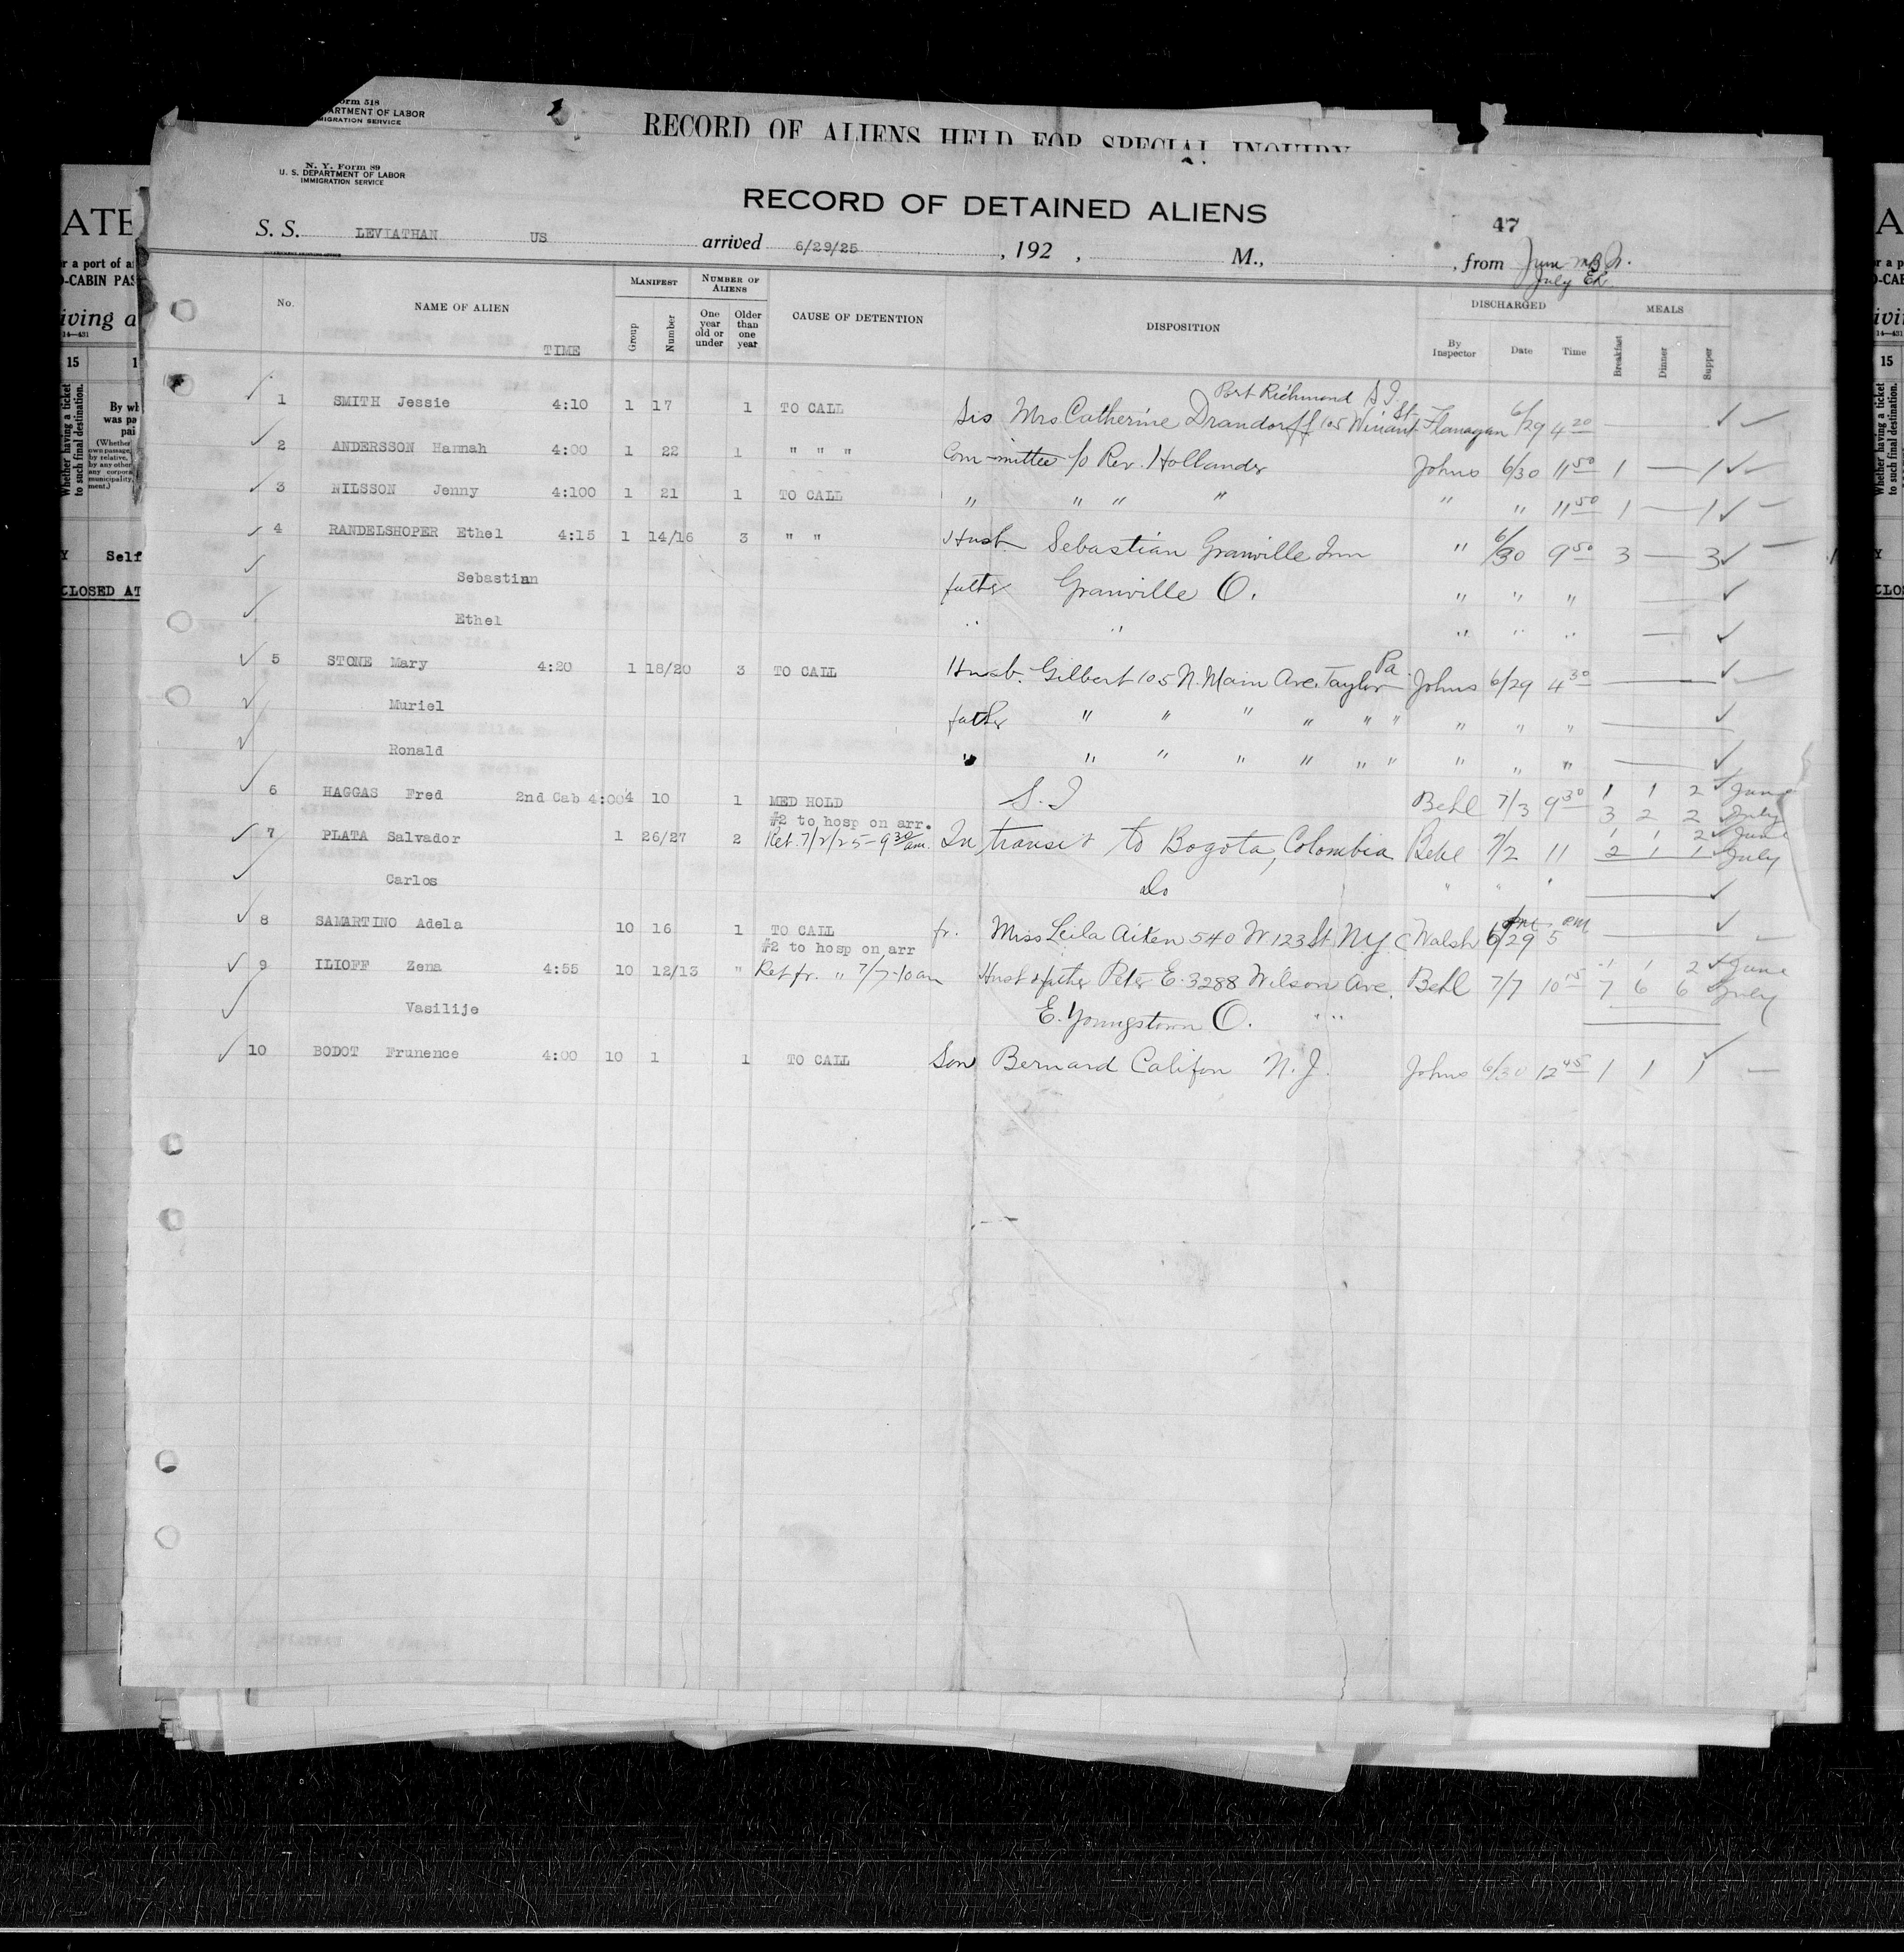 Form 518
DEPARTMENT OF LABOR
IMMIGRATION SERVICE
RECORD OF ALIENS HELD FOR SPECIAL INQUIRY
N. Y. Form 89
U. S. DEPARTMENT OF LABOR
IMMIGRATION SERVICE
RECORD OF DETAINED ALIENS
47
S. S. LEVIATHAN US arrived 6/29/25 , 192 , M., , from June
July
No. NAME OF ALIEN TIME MANIFEST Group Number NUMBER OF ALIENS One year old or under Older than one year CAUSE OF DETENTION DISPOSITION DISCHARGED By Inspector Date Time MEALS Breakfast Dinner Supper
Port Richmond S.I.
1 SMITH Jessie 4:10 1 17 1 TO CALL Sis Mrs Catherine Drandorff 105 Winant St. Flanagan 6/29 4 20
2 ANDERSSON Hannah 4:00 1 22 1 " " " Committee c/o Rev. Hollander Johns 6/30 11 50 1 — 1
3 NILSSON Jenny 4:100 1 21 1 TO CALL " " " " " " 11 50 1 — 1
4 RANDELSHOPER Ethel 4:15 1 14/16 3 " " Husb Sebastian Granville Inn " 6/30 9 50 3 — 3
Sebastian father Granville O. " " "
Ethel " " " " "
5 STONE Mary 4:20 1 18/20 3 TO CALL Husb. Gilbert 105 N. Main Ave. Taylor Pa. Johns 6/29 4 30
Muriel father " " " " " " " " "
Ronald " " " " " " " " " "
6 HAGGAS Fred 2nd Cab 4:00 4 10 1 MED HOLD S. I Behl 7/3 9 30 1 1 2 June
#2 to hosp on arr. 3 2 2 July
7 PLATA Salvador 1 26/27 2 Ret. 7/2/25 - 9 30 am. In transit to Bogota, Colombia Behl 7/2 11 1 1 2 June
2 1 1 July
Carlos Do " " "
8 SAMARTINO Adela 10 16 1 TO CALL fr. Miss Leila Aitken 540 W. 123 St. N.Y.C Walsh 6/29 5 PM
#2 to hosp on arr
9 ILIOFF Zena 4:55 10 12/13 " Ret fr. " 7/7-10 am Husb & father Peter E. 3288 Wilson Ave. Behl 7/7 10 15 1 1 2 June
7 6 6 July
Vasilije E. Youngstown O. " "
10 BODOT Frunence 4:00 10 1 1 TO CALL Son Bernard Califon N. J. Johns 6/30 12 45 1 1 1